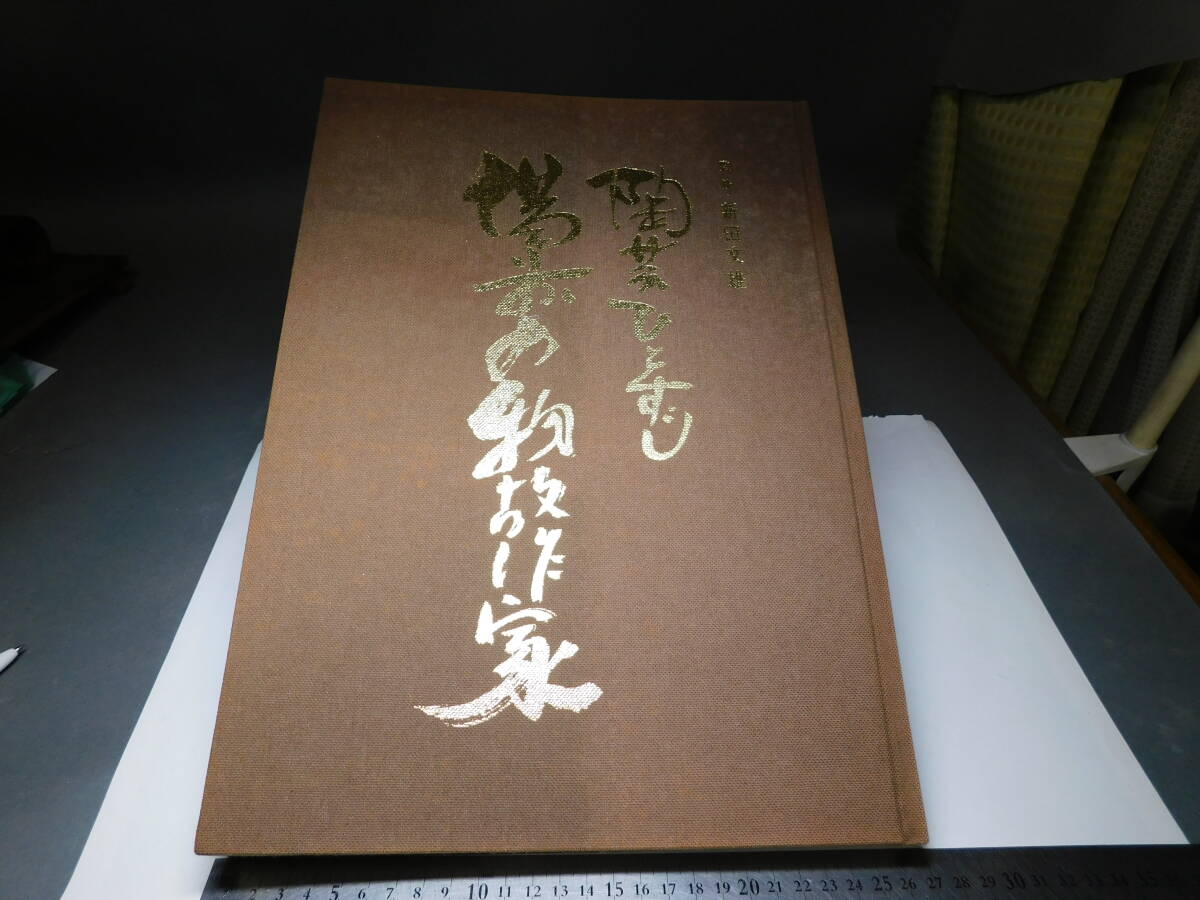 新田文雄
陶芸ひとすじ
備前の物故作家
2 3 4 5 6 7 8 9 10 11 12 13 14 15 16 17 18 19 20 21 22 23 24 25 26 27 28 29 30 31 32